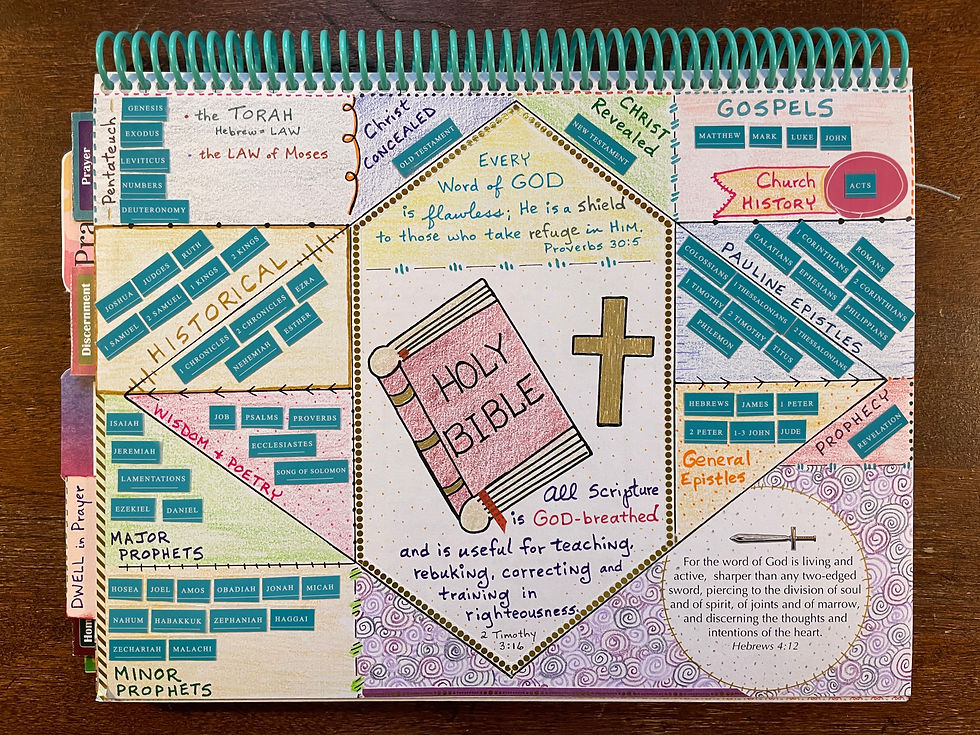 Pentateuch
GENESIS
EXODUS
LEVITICUS
NUMBERS
DEUTERONOMY
• the TORAH
Hebrew = LAW
• the LAW of Moses
Christ
CONCEALED
OLD TESTAMENT
CHRIST
Revealed
NEW TESTAMENT
GOSPELS
MATTHEW
MARK
LUKE
JOHN
Church
HISTORY
ACTS
Prayer
Pra
Discernment
DWELL in Prayer
Hom
HISTORICAL
JOSHUA
JUDGES
RUTH
1 SAMUEL
2 SAMUEL
1 KINGS
2 KINGS
1 CHRONICLES
2 CHRONICLES
EZRA
NEHEMIAH
ESTHER
EVERY
Word of GOD
is flawless; He is a shield
to those who take refuge in HIM.
Proverbs 30:5
HOLY
BIBLE
All Scripture
is GOD-breathed
and is useful for teaching,
rebuking, correcting and
training in
righteousness.
2 Timothy
3:16
PAULINE EPISTLES
ROMANS
1 CORINTHIANS
2 CORINTHIANS
GALATIANS
EPHESIANS
PHILIPPIANS
COLOSSIANS
1 THESSALONIANS
2 THESSALONIANS
1 TIMOTHY
2 TIMOTHY
TITUS
PHILEMON
WISDOM + POETRY
JOB
PSALMS
PROVERBS
ECCLESIASTES
SONG OF SOLOMON
ISAIAH
JEREMIAH
LAMENTATIONS
EZEKIEL
DANIEL
MAJOR
PROPHETS
HOSEA
JOEL
AMOS
OBADIAH
JONAH
MICAH
NAHUM
HABAKKUK
ZEPHANIAH
HAGGAI
ZECHARIAH
MALACHI
MINOR
PROPHETS
HEBREWS
JAMES
1 PETER
2 PETER
1-3 JOHN
JUDE
General
Epistles
PROPHECY
REVELATION
For the word of God is living and
active, sharper than any two-edged
sword, piercing to the division of soul
and of spirit, of joints and of marrow,
and discerning the thoughts and
intentions of the heart.
Hebrews 4:12